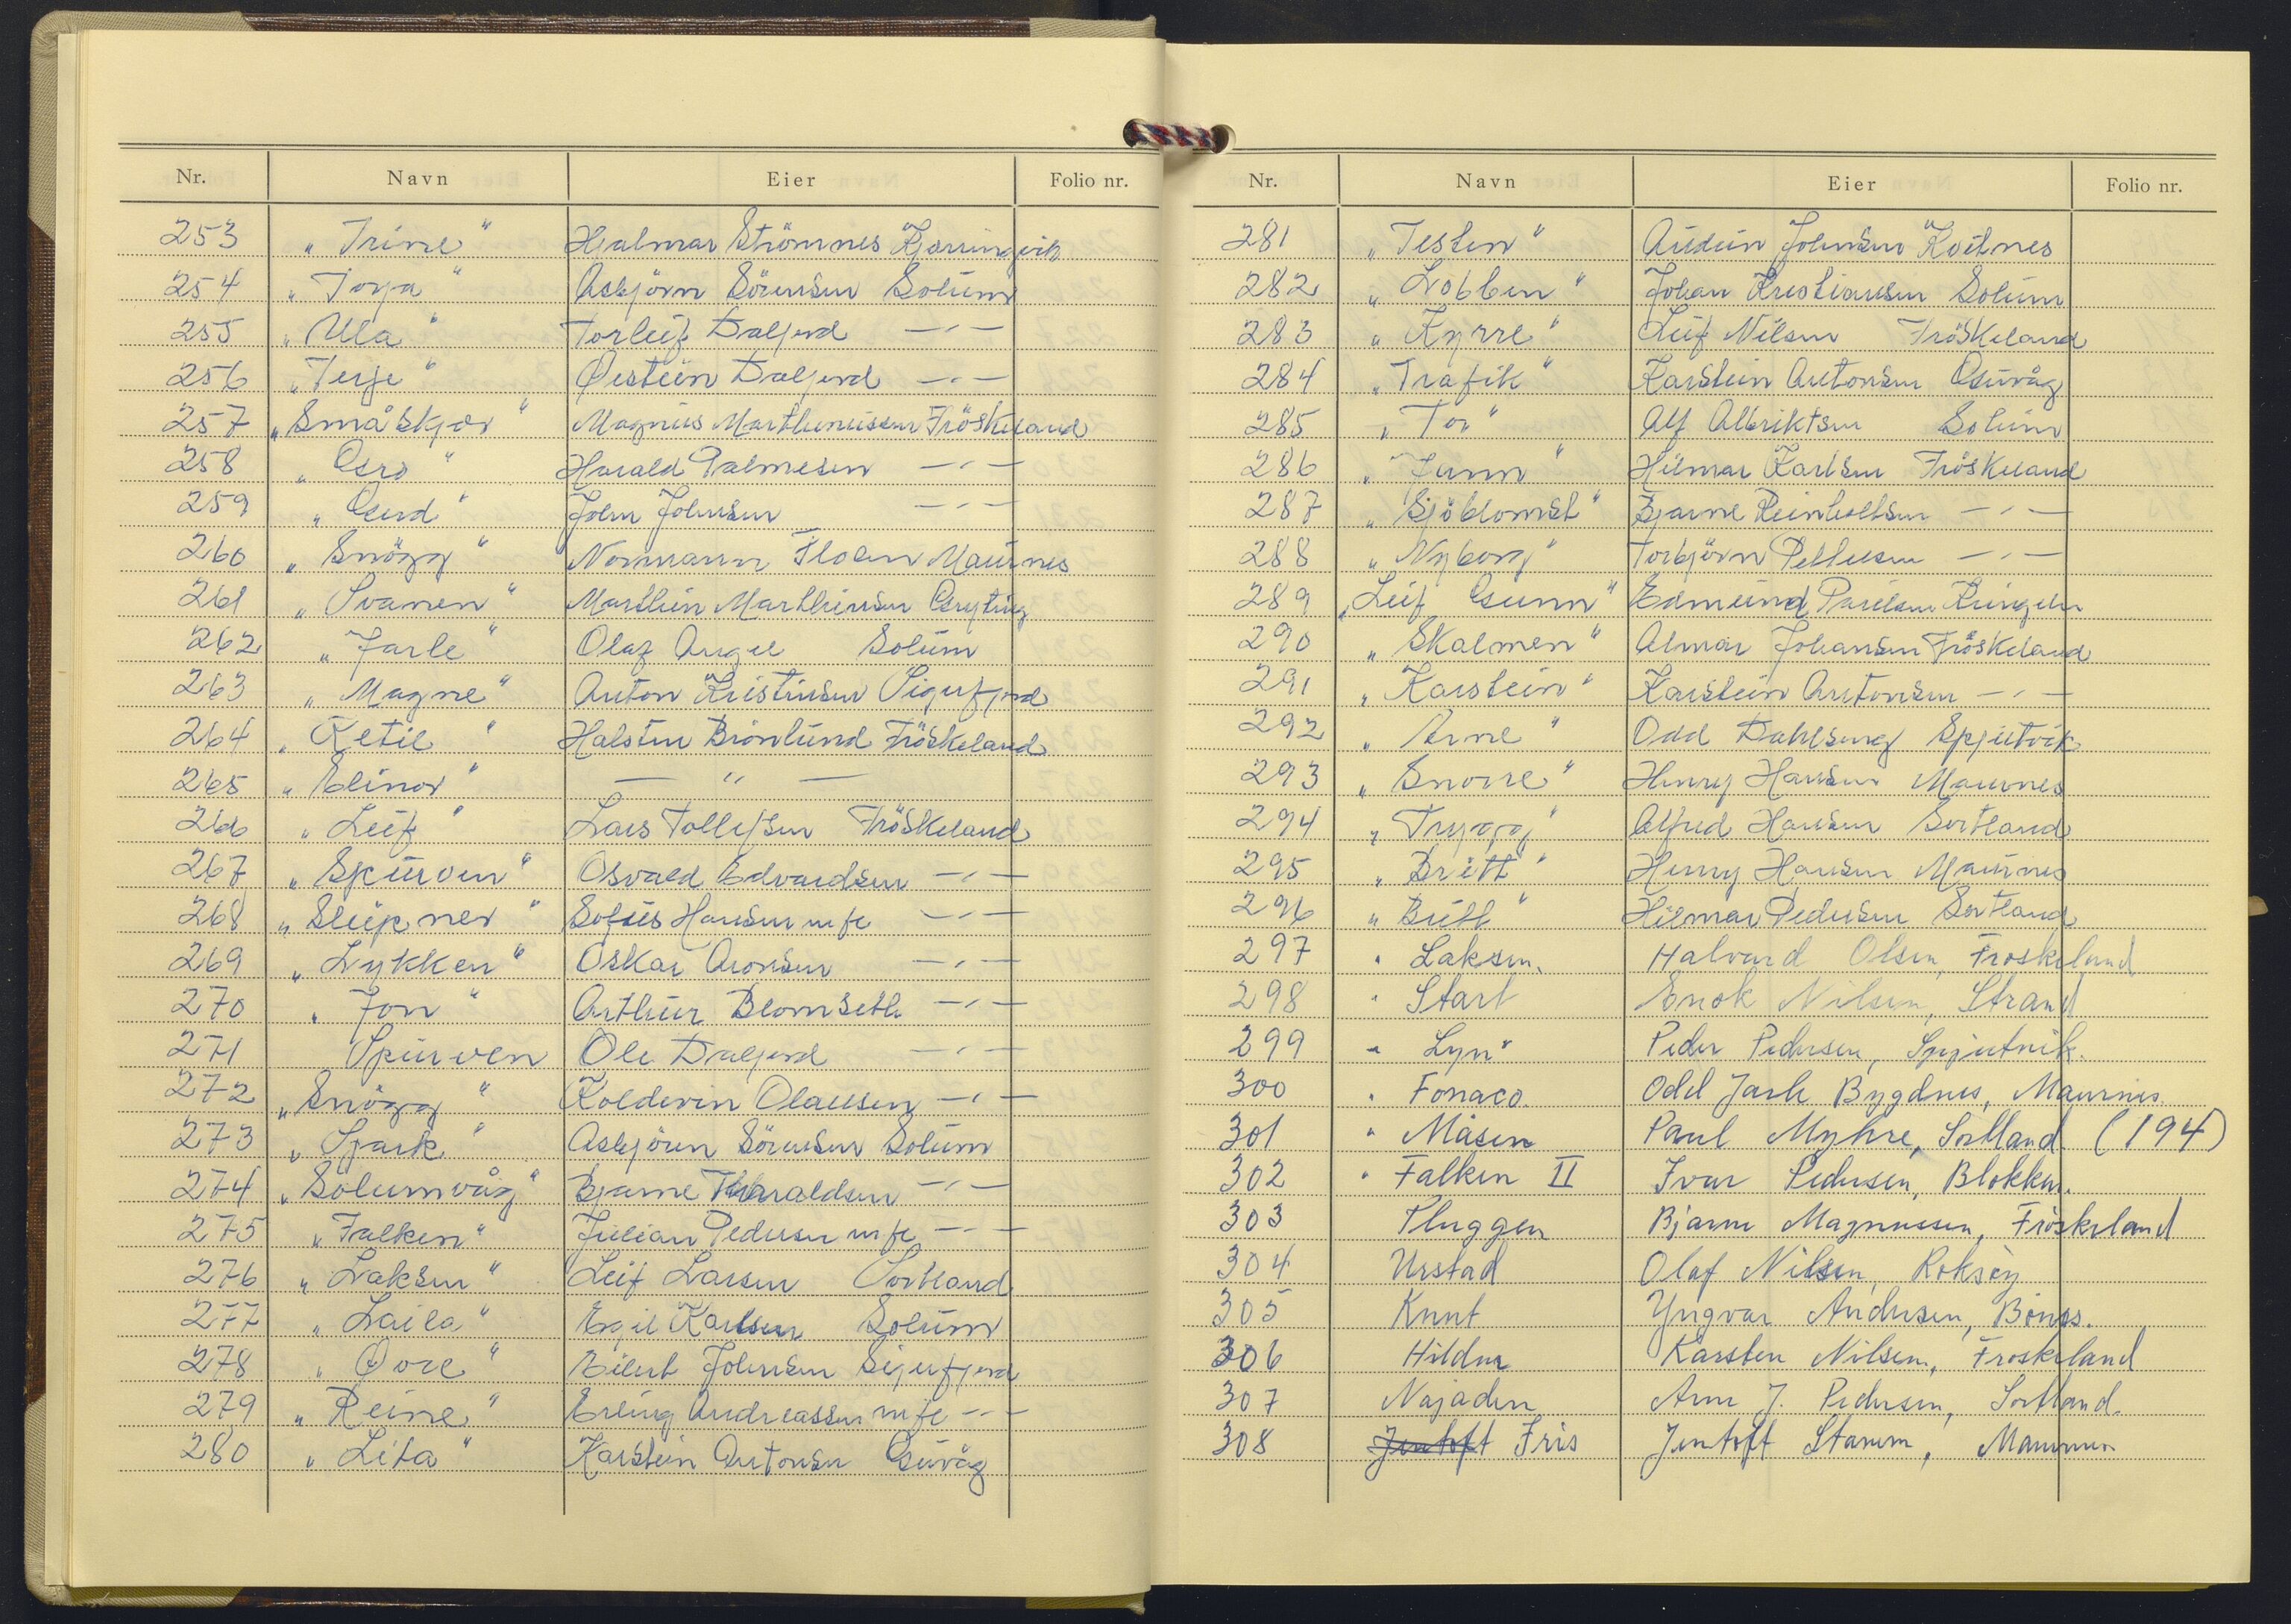 Nr. Navn Eier Folio nr.
253 „ Trine " Hjalmar Strömnes Kjerringvik
254 „ Torja " Asbjörn Sörensen Solum
255 „ Ula " Torleif Dalfjord —〃—
256 „ Terje " Øistein Dalfjord —〃—
257 „ Småskjær " Magnus Marthinussen Fröskeland
258 „ " Harald Palmesen —〃—
259 „ " John Johnsen —〃—
260 „ Snögg " Normann Floen Maurnes
261 „ Svanen " Marthin Marthinsen Gryting
262 „ Jarle " Olaf Angel Solum
263 „ Magne " Anton Kristinsen Sigerfjord
264 „ Ketil " Halsten Brönlund Fröskeland
265 „ Elinor " — 〃 —
266 „ Leif " Lars Tollefsen Fröskeland
267 „ Spurven " Osvald Edvardsen —〃—
268 „ Sleipner " Sofus Hansen mfe —〃—
269 „ Lykken " Oskar Aronsen —〃—
270 „ Jon " Arthur Blomseth —〃—
271 Spurven Ole Dalfjord —〃—
272 „ Snögg " Koldevin Olaussen —〃—
273 „ Spark " Asbjören Sörensen Solum
274 „ Solumvåg " Bjarne Haraldsen —〃—
275 „ Falken " Julian Pedersen mfe —〃—
276 „ Laksen " Leif Larsen Sortland
277 „ Laila " Egil Karlsen Solum
278 „ " Eilert Johnsen Sigerfjord
279 „ Reine " Erling Andreassen mfe —〃—
280 „ Lita " Karstein Antonsen Guvåg
Nr. Navn Eier Folio nr.
281 „ Testen " Audun Johnsen Kvitnes
282 „ Lobben " Johan Kristiansen Solum
283 „ Kyrre " Leif Nilsen Fröskeland
284 „ Trafik " Karstein Antonsen Guvåg
285 „ Tor " Alf Albriktsen Solum
286 „ " Hilmar Karlsen Fröskeland
287 „ Sjöblomst " Bjarne Reinholtsen —〃—
288 „ Nyborg " Torbjörn Pettersen —〃—
289 „ Leif Gunn " Edmund Paulsen Ringelen
290 „ Skalmen " Almar Johansen Fröskeland
291 „ Karstein " Karstein Antonsen —〃—
292 „ Arne " Odd Dahlseng Spjutvik
293 „ Snorre " Henry Hansen Maurnes
294 „ Trygg " Alfred Hansen Sortland
295 „ Britt " Henry Hansen Maurnes
296 „ " Hilmar Pedersen Sortland
297 " Laksen. Halvard Olsen, Froskeland
298 " Start Enok Nilsen, Strand
299 " Lyn " Peder Pedersen, Spjutvik.
300 " Fonaco. Odd Jarle Bygdnes, Maurnes.
301 " Måsen Paul Myhre, Sortland (194)
302 " Falken II Ivar Pedersen, Blokken.
303 Pluggen Bjarne Magnussen, Fröskeland
304 Urstad Olaf Nilsen, Roksöy
305 Knut Yngvar Andersen,
306 Hildur Karsten Nilsen, Froskeland
307 Najaden Arne J. Pedersen, Sortland.
308 Jentoft Fris Jentoft